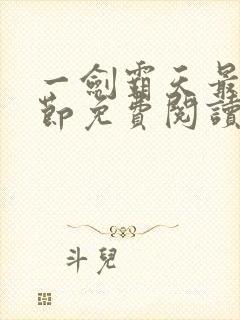 一劍霸天最
節免費閱讀
斗兒